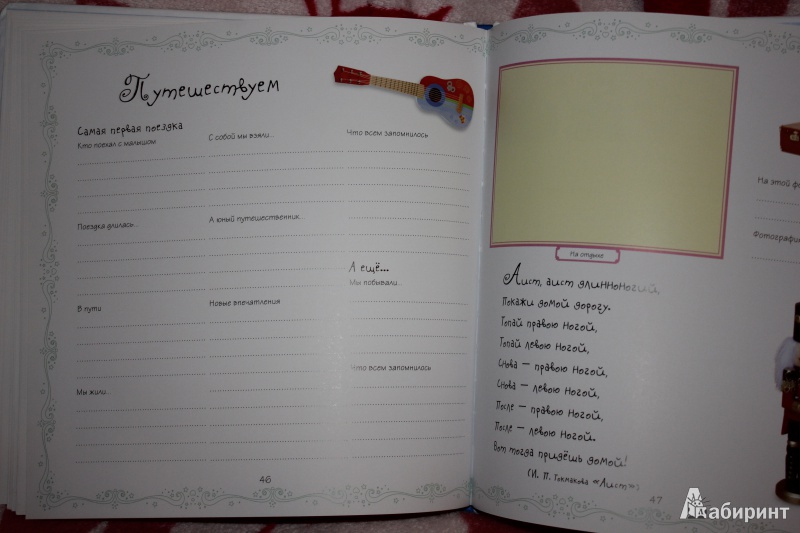 Путешествуем
Самая первая поездка
Кто поехал с малышом
С собой мы взяли...
Что всем запомнилось
Поездка длилась...
А юный путешественник...
А ещё...
Мы побывали...
В пути
Новые впечатления
Что всем запомнилось
Мы жили...
46
На отдыхе
Аист, аист длинноногий,
Покажи домой дорогу.
Топай правою ногой,
Топай левою ногой,
Снова — правою ногой,
Снова — левою ногой,
После — правою ногой,
После — левою ногой.
Вот тогда придёшь домой!
(И. П. Токмакова «Аист»)
47
На этой фо
Фотографи
Лабиринт